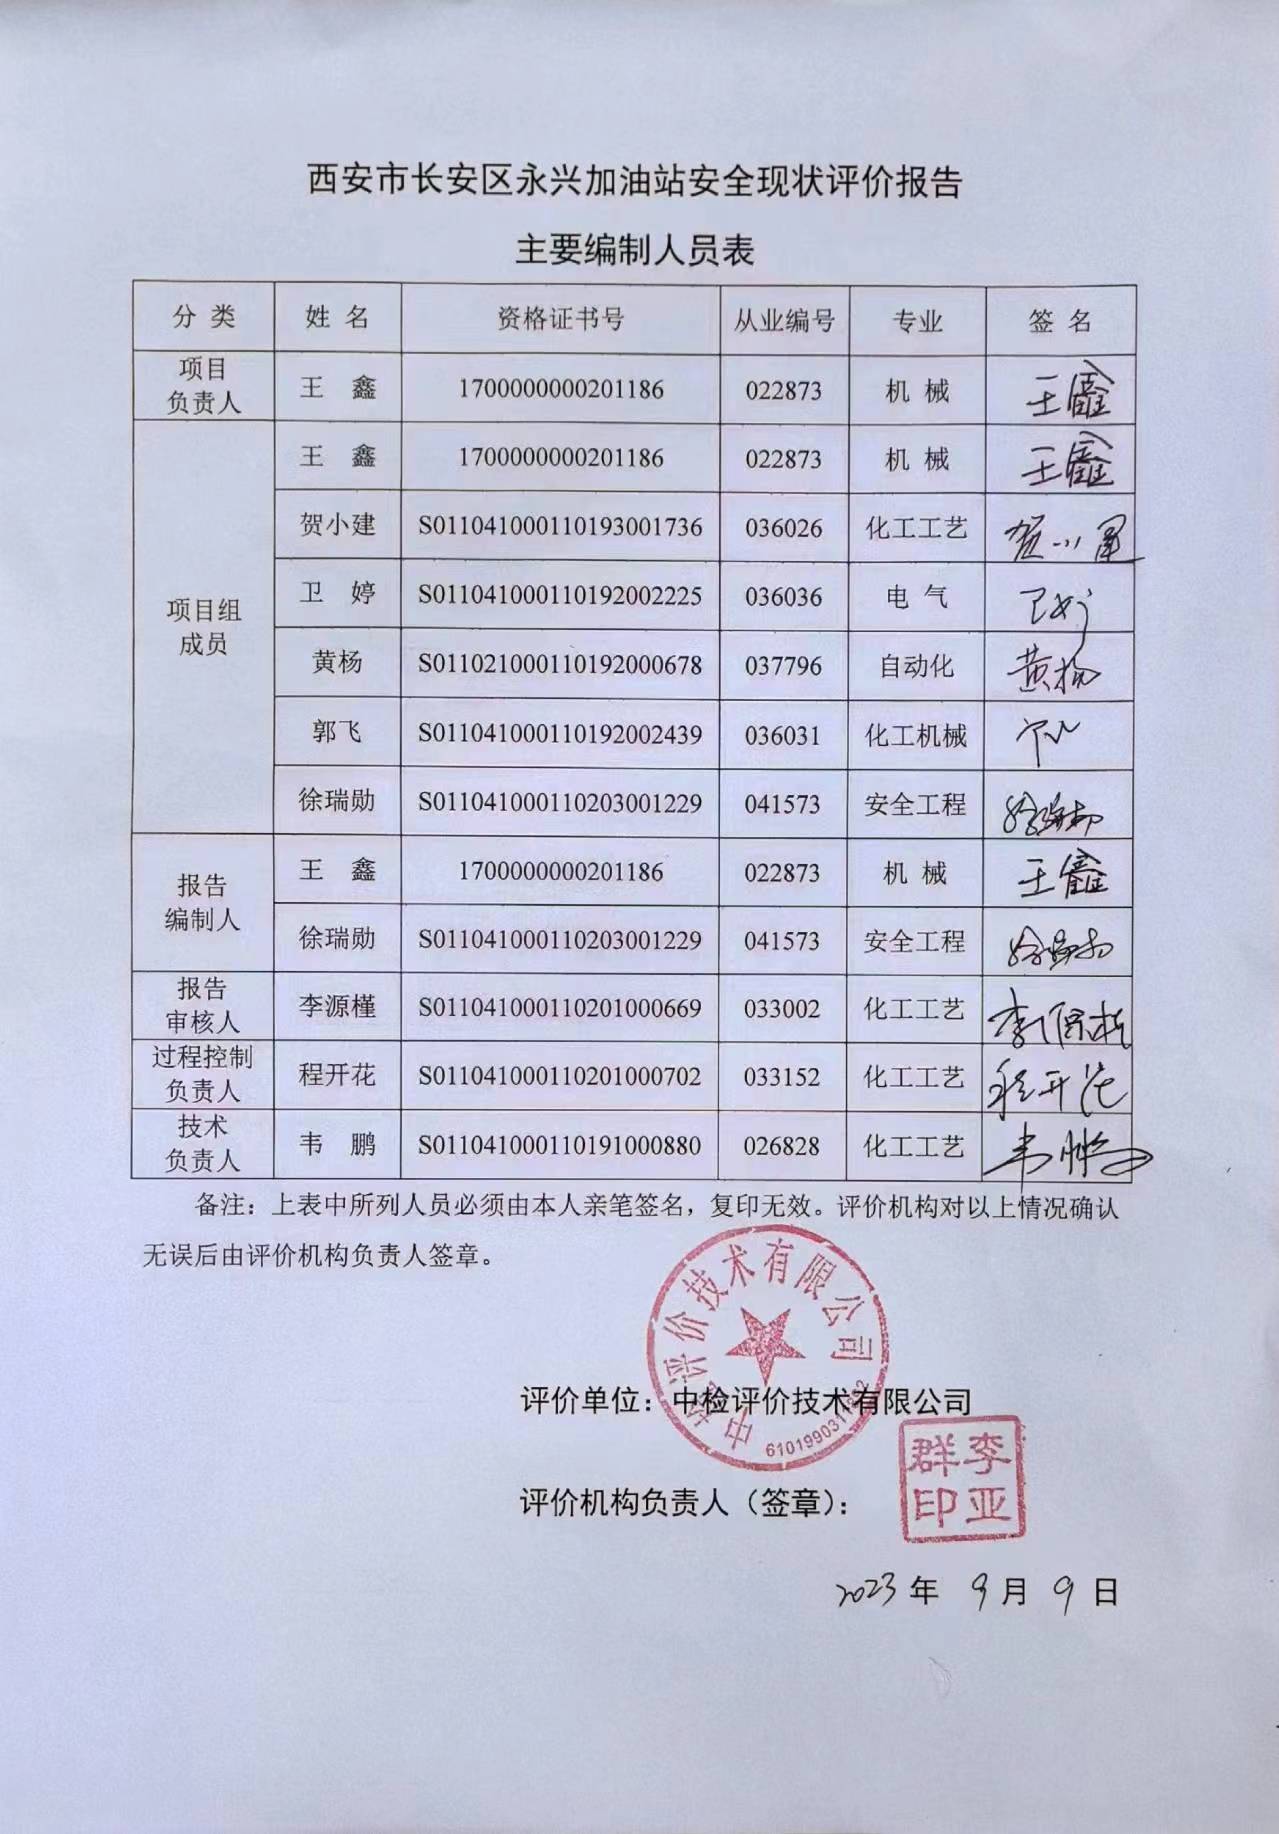 西安市长安区永兴加油站安全现状评价报告
主要编制人员表
分 类 姓 名 资格证书号 从业编号 专业 签 名
项目
负责人 王 鑫 1700000000201186 022873 机 械 王鑫
项目组
成员
王 鑫 1700000000201186 022873 机 械 王鑫
贺小建 S011041000110193001736 036026 化工工艺 贺小建
卫 婷 S011041000110192002225 036036 电 气
黄杨 S011021000110192000678 037796 自动化 黄杨
郭飞 S011041000110192002439 036031 化工机械
徐瑞勋 S011041000110203001229 041573 安全工程 徐瑞勋
报告
编制人
王 鑫 1700000000201186 022873 机 械 王鑫
徐瑞勋 S011041000110203001229 041573 安全工程 徐瑞勋
报告
审核人 李源槿 S011041000110201000669 033002 化工工艺 李源槿
过程控制
负责人 程开花 S011041000110201000702 033152 化工工艺 程开花
技术
负责人 韦 鹏 S011041000110191000880 026828 化工工艺 韦鹏
备注：上表中所列人员必须由本人亲笔签名，复印无效。评价机构对以上情况确认
无误后由评价机构负责人签章。
中检评价技术有限公司
评价单位：中检评价技术有限公司
评价机构负责人（签章）：
李亚群印
2023年 9月 9日